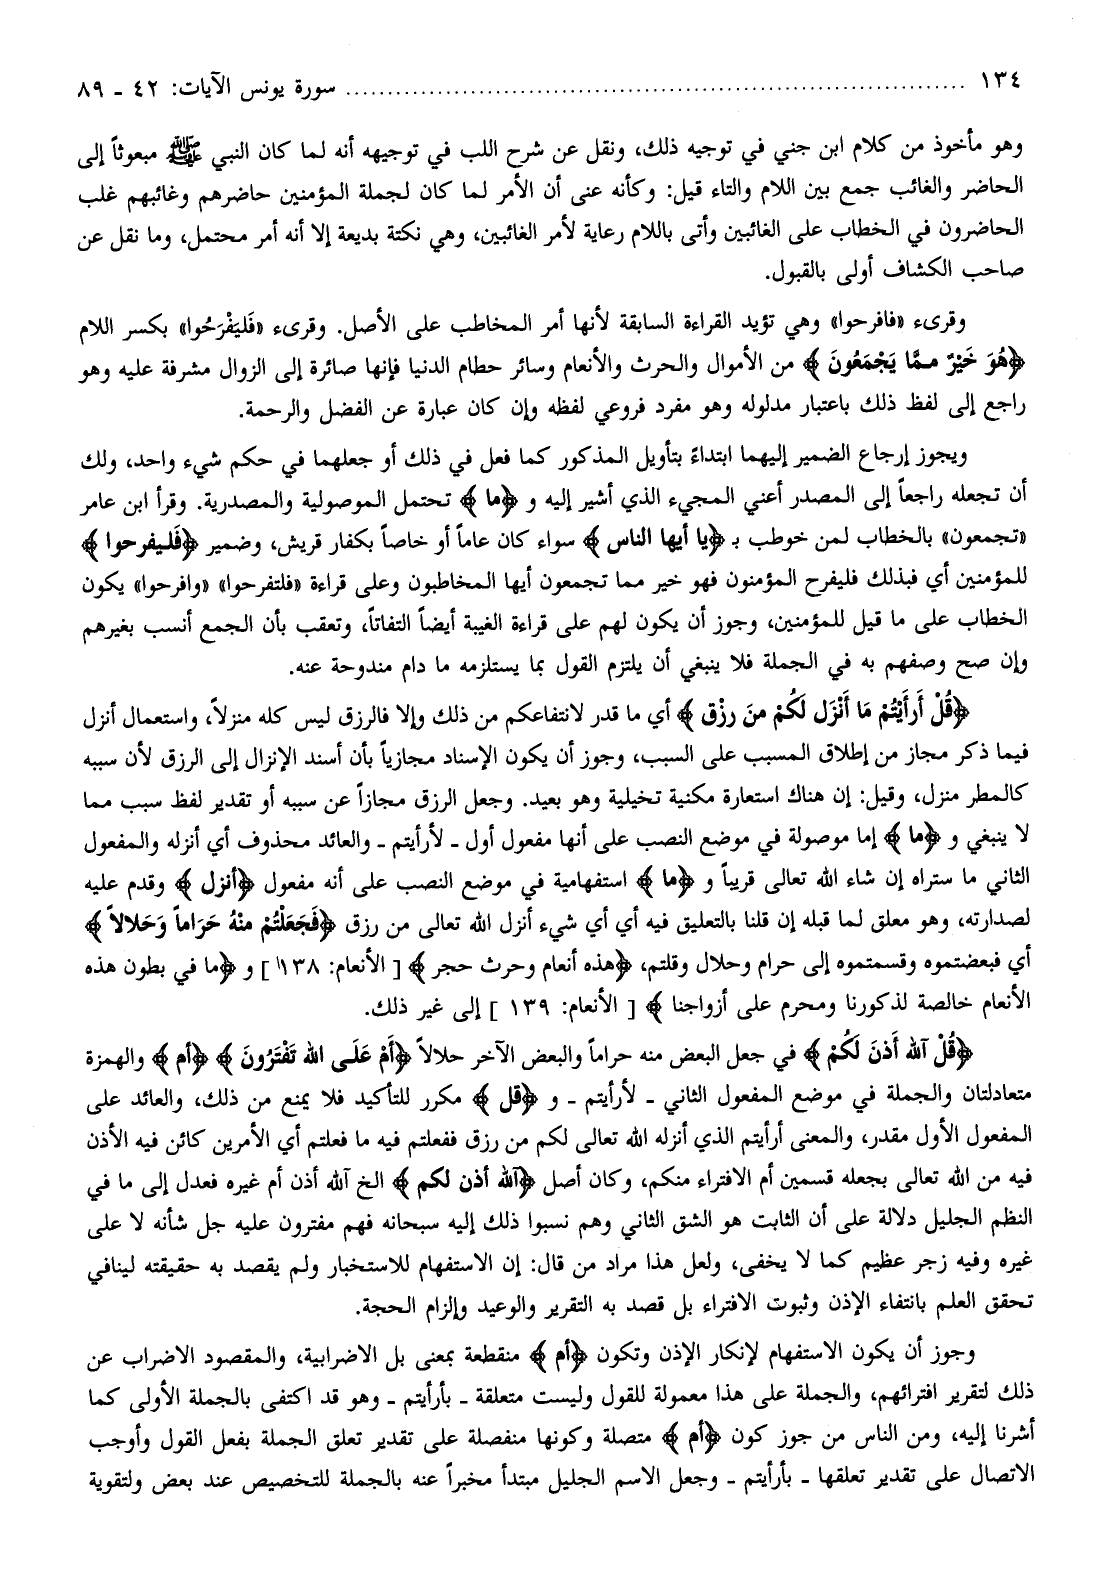 ١٣٤ ........................................ سورة يونس الآيات: ٤٢ ـ ٨٩
وهو مأخوذ من كلام ابن جني في توجيه ذلك، ونقل عن شرح اللب في توجيهه أنه لما كان النبي ﷺ مبعوثاً إلى
الحاضر والغائب جمع بين اللام والتاء قيل: وكأنه عنى أن الأمر لما كان لجملة المؤمنين حاضرهم وغائبهم غلب
الحاضرون في الخطاب على الغائبين وأتى باللام رعاية لأمر الغائبين، وهي نكتة بديعة إلا أنه أمر محتمل، وما نقل عن
صاحب الكشاف أولى بالقبول.
وقرىء «فافرحوا» وهي تؤيد القراءة السابقة لأنها أمر المخاطب على الأصل. وقرىء «فَلِيَفْرَحُوا» بكسر اللام
﴿هُوَ خَيْرٌ ممَّا يَجْمَعُونَ﴾ من الأموال والحرث والأنعام وسائر حطام الدنيا فإنها صائرة إلى الزوال مشرفة عليه وهو
راجع إلى لفظ ذلك باعتبار مدلوله وهو مفرد فروعي لفظه وإن كان عبارة عن الفضل والرحمة.
ويجوز إرجاع الضمير إليهما ابتداءً بتأويل المذكور كما فعل في ذلك أو جعلهما في حكم شيء واحد، ولك
أن تجعله راجعاً إلى المصدر أعني المجيء الذي أشير إليه و ﴿ما﴾ تحتمل الموصولية والمصدرية. وقرأ ابن عامر
«تجمعون» بالخطاب لمن خوطب بـ ﴿يا أيها الناس﴾ سواء كان عاماً أو خاصاً بكفار قريش، وضمير ﴿فَليفرحوا﴾
للمؤمنين أي فبذلك فليفرح المؤمنون فهو خير مما تجمعون أيها المخاطبون وعلى قراءة «فلتفرحوا» «وافرحوا» يكون
الخطاب على ما قيل للمؤمنين، وجوز أن يكون لهم على قراءة الغيبة أيضاً التفاتاً، وتعقب بأن الجمع أنسب بغيرهم
وإن صح وصفهم به في الجملة فلا ينبغي أن يلتزم القول بما يستلزمه ما دام مندوحة عنه.
﴿قُلْ أَرَأَيْتُمْ مَا أَنْزَل لَكُمْ منَ رزْق﴾ أي ما قدر لانتفاعكم من ذلك وإلا فالرزق ليس كله منزلاً، واستعمال أنزل
فيما ذكر مجاز من إطلاق المسبب على السبب، وجوز أن يكون الإسناد مجازياً بأن أسند الإنزال إلى الرزق لأن سببه
كالمطر منزل، وقيل: إن هناك استعارة مكنية تخيلية وهو بعيد. وجعل الرزق مجازاً عن سببه أو تقدير لفظ سبب مما
لا ينبغي و ﴿ما﴾ إما موصولة في موضع النصب على أنها مفعول أول ـ لأرأيتم ـ والعائد محذوف أي أنزله والمفعول
الثاني ما ستراه إن شاء الله تعالى قريباً و ﴿ما﴾ استفهامية في موضع النصب على أنه مفعول ﴿أنزل﴾ وقدم عليه
لصدارته، وهو معلق لما قبله إن قلنا بالتعليق فيه أي أي شيء أنزل الله تعالى من رزق ﴿فَجَعَلْتُمْ منْهُ حَرَاماً وَحَلالاً﴾
أي فبعضتموه وقسمتموه إلى حرام وحلال وقلتم، ﴿هذه أنعام وحرث حجر﴾ [ الأنعام: ١٣٨ ] و ﴿ما في بطون هذه
الأنعام خالصة لذكورنا ومحرم على أزواجنا﴾ [ الأنعام: ١٣٩ ] إلى غير ذلك.
﴿قُلْ آلله أَذنَ لَكُمْ﴾ في جعل البعض منه حراماً والبعض الآخر حلالاً ﴿أَمْ عَلَى الله تَفْتَرُونَ﴾ ﴿أم﴾ والهمزة
متعادلتان والجملة في موضع المفعول الثاني ـ لأرأيتم ـ و ﴿قل﴾ مكرر للتأكيد فلا يمنع من ذلك، والعائد على
المفعول الأول مقدر، والمعنى أرأيتم الذي أنزله الله تعالى لكم من رزق ففعلتم فيه ما فعلتم أي الأمرين كائن فيه الأذن
فيه من الله تعالى بجعله قسمين أم الافتراء منكم، وكان أصل ﴿آلله أذن لكم﴾ الخ آلله أذن أم غيره فعدل إلى ما في
النظم الجليل دلالة على أن الثابت هو الشق الثاني وهم نسبوا ذلك إليه سبحانه فهم مفترون عليه جل شأنه لا على
غيره وفيه زجر عظيم كما لا يخفى، ولعل هذا مراد من قال: إن الاستفهام للاستخبار ولم يقصد به حقيقته لينافي
تحقق العلم بانتفاء الإذن وثبوت الافتراء بل قصد به التقرير والوعيد وإلزام الحجة.
وجوز أن يكون الاستفهام لإنكار الإذن وتكون ﴿أم﴾ منقطعة بمعنى بل الاضرابية، والمقصود الاضراب عن
ذلك لتقرير افترائهم، والجملة على هذا معمولة للقول وليست متعلقة ـ بأرأيتم ـ وهو قد اكتفى بالجملة الأولى كما
أشرنا إليه، ومن الناس من جوز كون ﴿أم﴾ متصلة وكونها منفصلة على تقدير تعلق الجملة بفعل القول وأوجب
الاتصال على تقدير تعلقها ـ بأرأيتم ـ وجعل الاسم الجليل مبتدأ مخبراً عنه بالجملة للتخصيص عند بعض ولتقوية